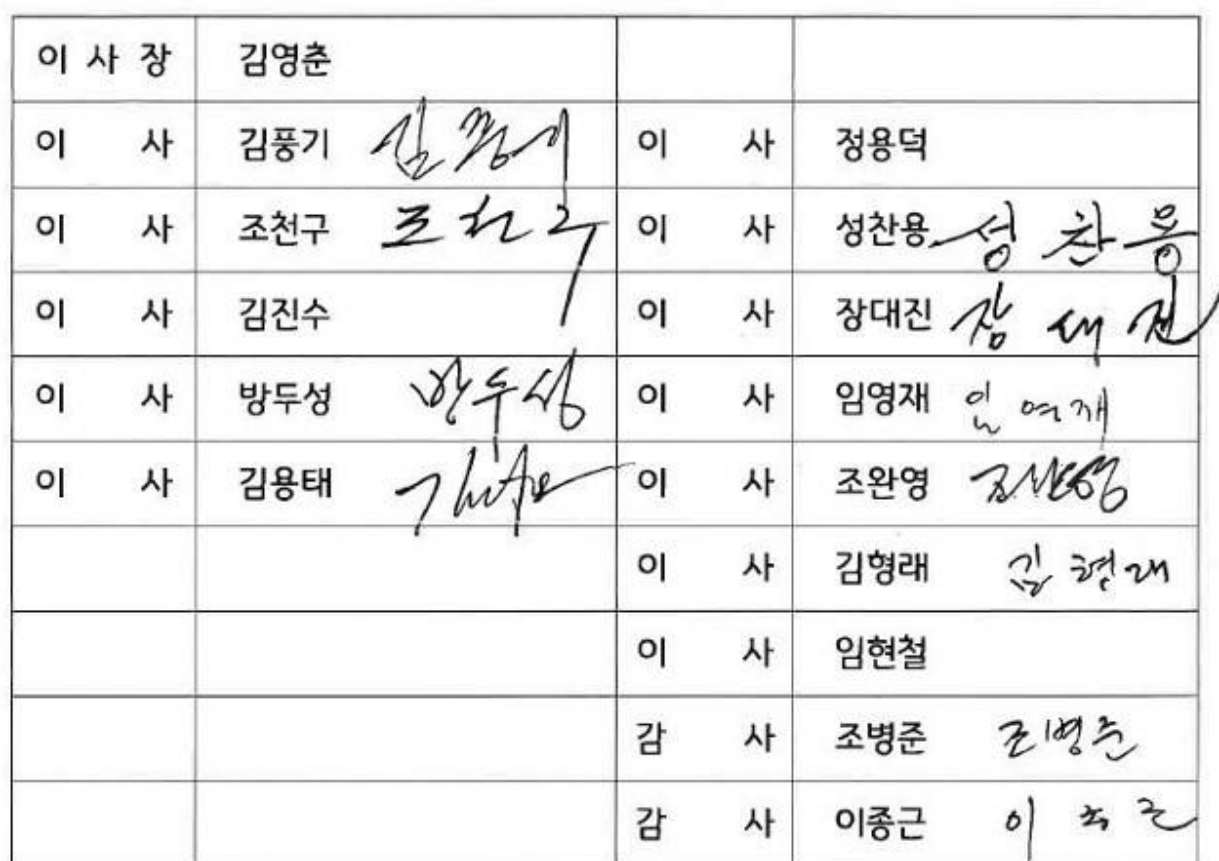 이 사 장 김영춘
이 사 김풍기 김풍기 이 사 정용덕
이 사 조천구 조천구 이 사 성찬용 성찬용
이 사 김진수 이 사 장대진 장대진
이 사 방두성 방두성 이 사 임영재 임영재
이 사 김용태 이 사 조완영 조완영
이 사 김형래 김형래
이 사 임현철
감 사 조병준 조병준
감 사 이종근 이종근